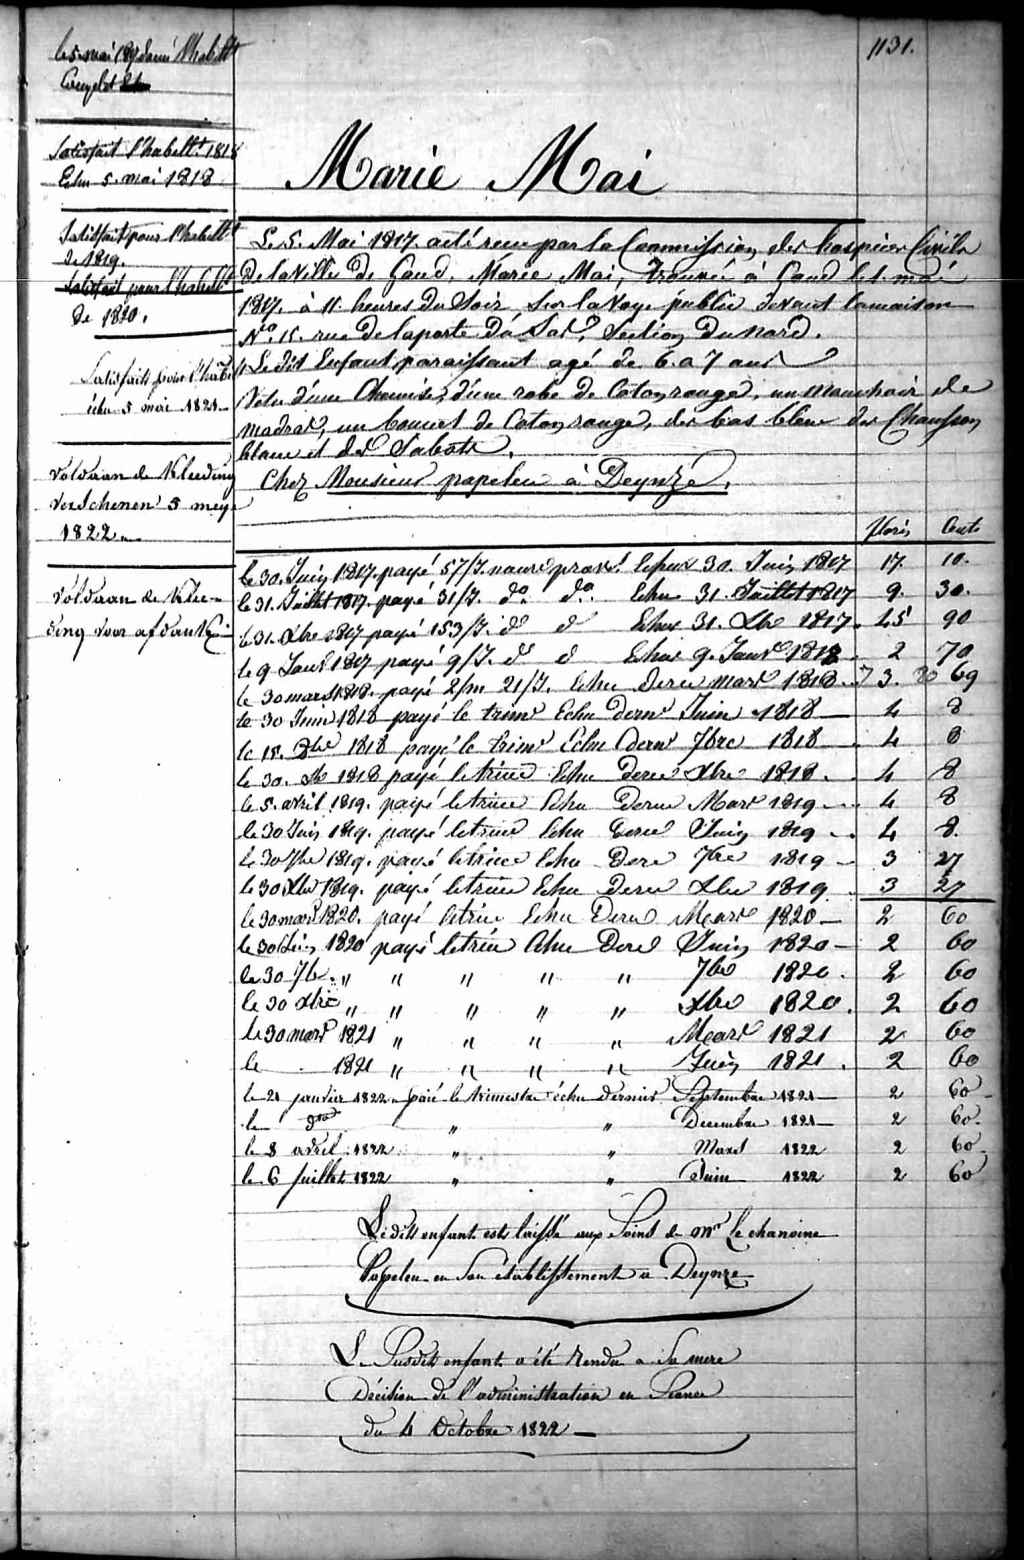 1131.
le 5 mai 1817 donné l'habellt
Complet
Satisfait l'habellt 1818
Echu 5 mai 1818
Satisfait pour l'habellt
de 1819.
Satisfait pour l'habellt
de 1820.
Satisfait pour l'hab
échu 5 mai 1821
voldaan de Kleeding
verschenen 5 mey
1822
voldaan de Klee-
ding voor afdank
Marie Mai
Le 5. Mai 1817 a été reçu par la Commission des hospices Civils
de la Ville de Gand, Marie Mai, trouvée à Gand le 1. mai
1817, à 11 heures du Soir Sur la Voye public devant la maison
No. 15. rue de la porte du Sas, Section du nord.
Le dit Enfant paraissant agé de 6 a 7 ans
Vetu d'une Chemise, d'une robe de Coton rouge, un Mouchoir de
madras, un bonnet de Coton rouge, des bas bleu des Chausson
blanc et des Sabots.
Chez Monsieur papeleu à Deynze.
floris Cents
le 30. Juin 1817. payé 57/J. nourr prov. Echus 30. Juin 1817 17. 10.
le 31. Juillet 1817. payé 31/J. do. do. Echu 31. Juillet 1817 9. 30.
le 31. Xbre 1817 payé 153/J. do d Echus 31. Xbre 1817. 45 90
le 9 Janv 1817 payé 9/J. do d Echus 9. Janv 1818 2 70
le 30 mars 1818. payé 2/m 21/J. Echu dernier mars 1818 3. 69
le 30 Juin 1818 payé le trimr Echu dernr Juin 1818 4 8
le 15. 8bre 1818 payé le trimr Echu dernr 7bre 1818 4 8
le 30. Xb 1818 payé le trime Echu derne Xbre 1818. 4 8
le 5. avril 1819. payé le trime Echu Derne Mars 1819 4 8
le 30 Juin 1819. payé le trime Echu derne Juin 1819 4 8.
le 30 7bre 1819. payé le trime Echu Dere 7bre 1819 3 27
le 30 Xbre 1819. payé le trime Echu Derne Xbre 1819 3 27
le 30 mars 1820. payé le trime Echu Derne Mars 1820 2 60
le 30 Juin 1820 payé le trim Echu Dere Juin 1820 2 60
le 30 7b. " " " " " 7bre 1820. 2 60
le 30 Xbre " " " " " Xbre 1820. 2 60
le 30 mars 1821 " " " " Mars 1821 2 60
le 1821 " " " " Juin 1821. 2 60
le 21 janvier 1822 paié le trimestre échu dernier Septembre 1821 2 60
le dto " " Decembre 1821 2 60.
le 8 avril 1822 " " Mars 1822 2 60
le 6 juillet 1822 " " Juin 1822 2 60
Le dit enfant est laissé aux Soins de Mr le chanoine
Papeleu en Son établissement à Deynze
Le Susdit enfant a été rendu a Sa mere
Décision de l'administration en Séance
du 4 Octobre 1822